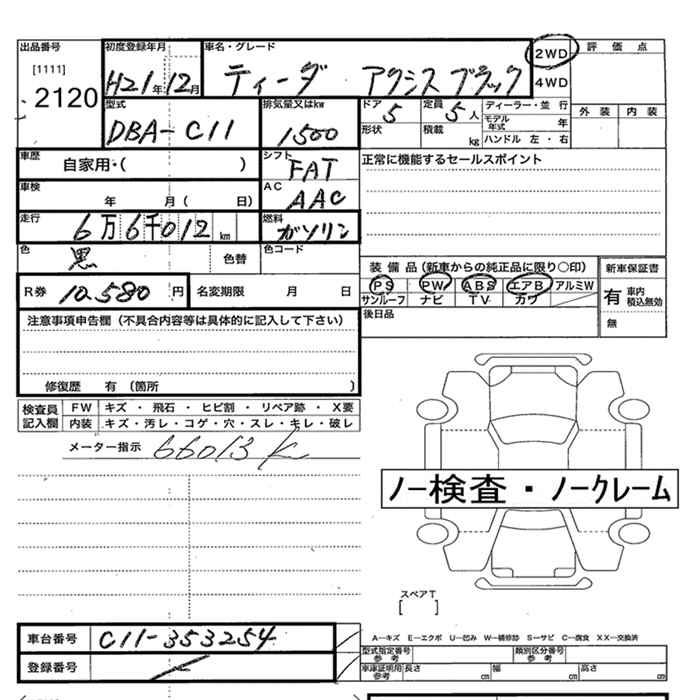 出品番号 初度登録年月 車名・グレード 2WD 評価点
[1111] H21年12月 ティーダ アクシス ブラック 4WD
2120 外装 内装
型式 排気量又はkw ドア 定員 ディーラー・並行
DBA-C11 1500 5 5人 モデル年式 年
形状 積載 kg ハンドル 左・右
車歴 自家用・( ) シフト FAT 正常に機能するセールスポイント
車検 年 月( 日) AC AAC
走行 6万6千012km 燃料 ガソリン
色 黒 色替 色コード
装備品(新車からの純正品に限り○印) 新車保証書
R券 10,580円 名変期限 月 日 PS PW ABS エアB アルミW 有 車内積込無効
サンルーフ ナビ TV カワ
注意事項申告欄(不具合内容等は具体的に記入して下さい) 後日品 無
修復歴 有(箇所 )
検査員記入欄 FW キズ・飛石・ヒビ割・リペア跡・X要
内装 キズ・汚レ・コゲ・穴・スレ・キレ・破レ
メーター指示 66013K
ノー検査・ノークレーム
スペアT
[ ]
車台番号 C11-353254 A-キズ E-エクボ U-凹み W-補修跡 S-サビ C-腐食 XX-交換済
登録番号 型式指定番号 参考 類別区分番号 参考
車庫証明用 参考 長さ cm 幅 cm 高さ cm